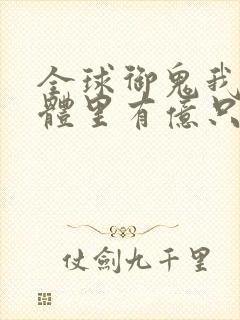 全球御鬼我
體里有億只
仗劍九千里